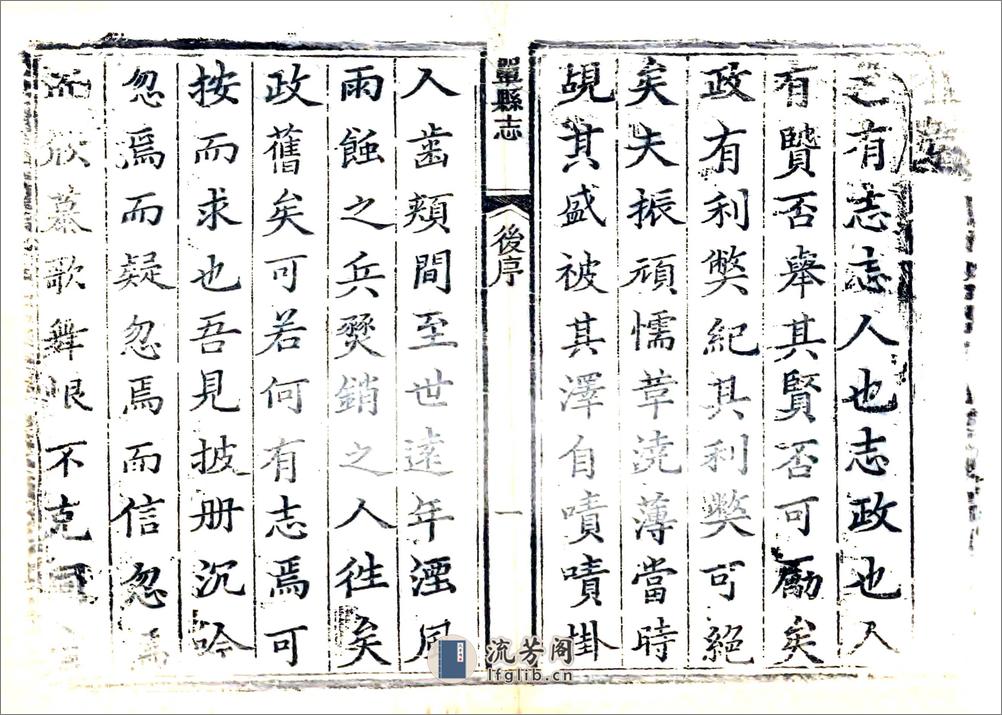 邑有志志人也志政也人
有賢否舉其賢否可勵矣
政有利弊紀其利弊可絕
矣夫振頑懦革澆薄當時
覩其盛被其澤自嘖嘖掛
單縣志
後序
一
人齒頰間至世遠年湮風
雨蝕之兵燹銷之人徃矣
政舊矣可若何有志焉可
按而求也吾見披册沉吟
忽焉而疑忽焉而信忽焉
欣慕歌舞恨不克同
流芳阁
lfglib.cn